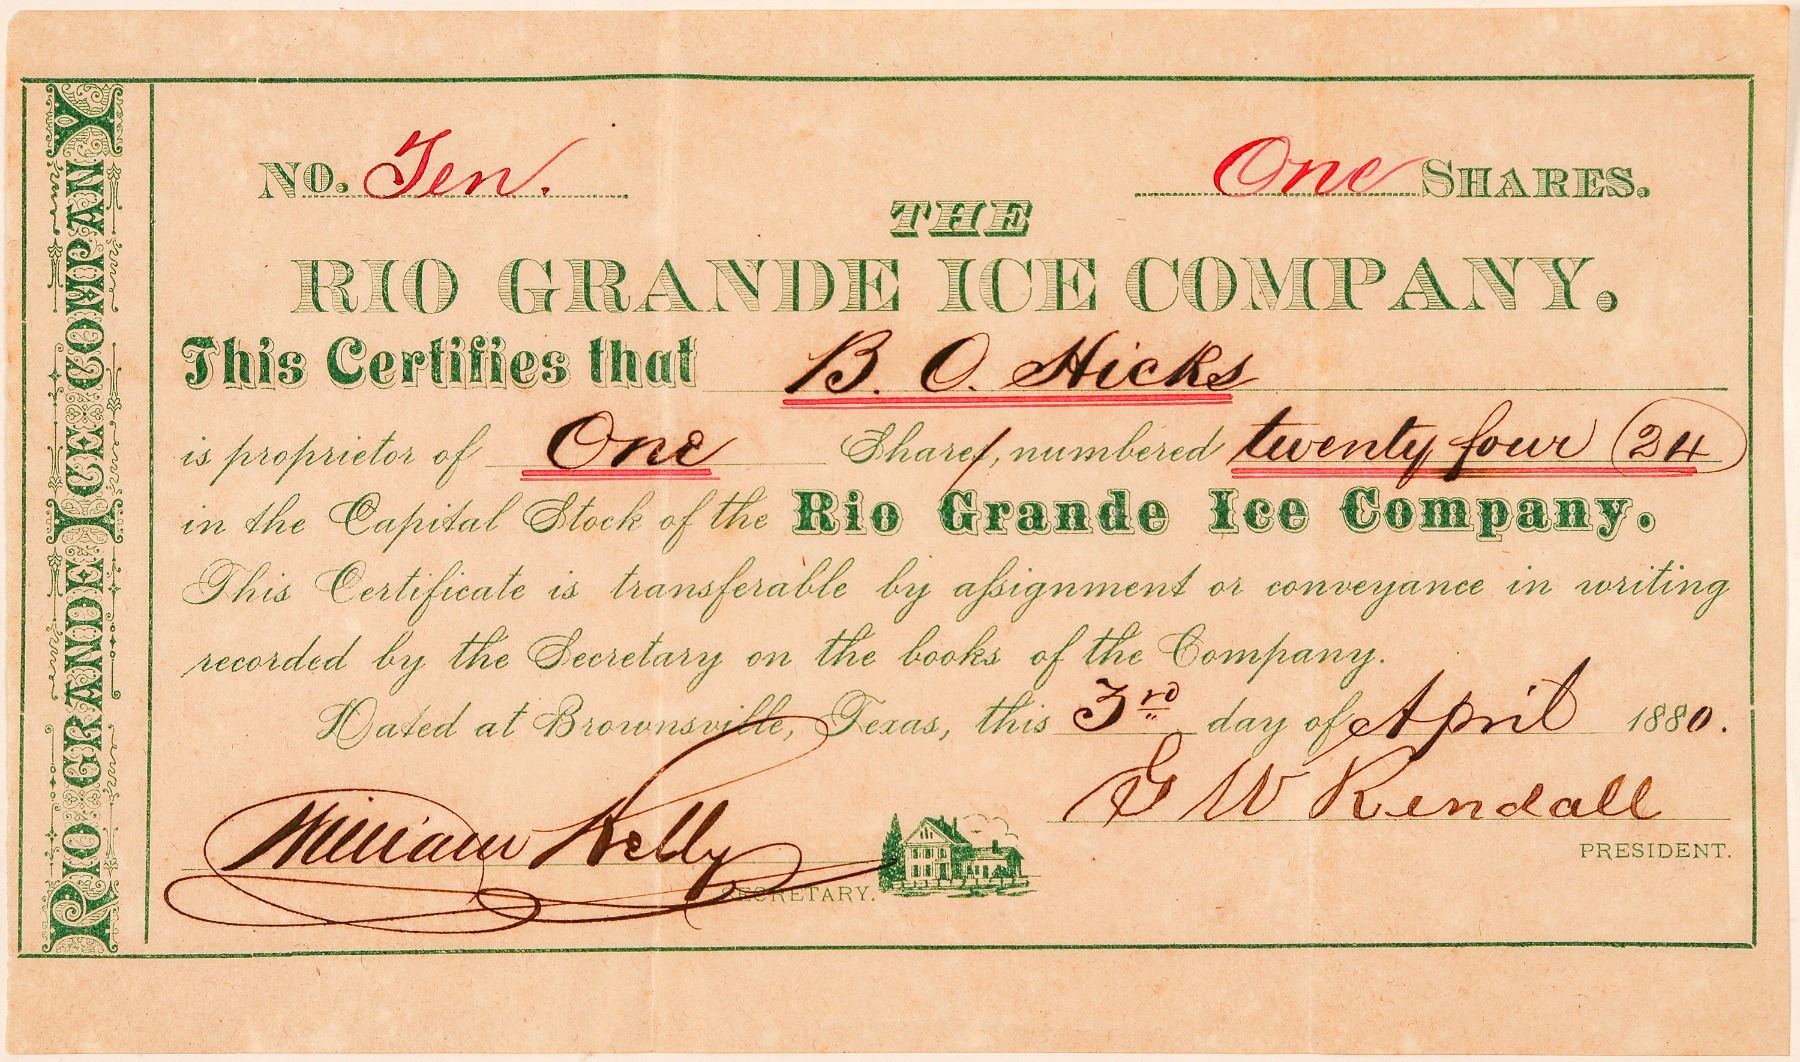 RIO GRANDE ICE COMPANY
No. Ten. One SHARES.
THE
RIO GRANDE ICE COMPANY.
This Certifies that B. O. Hicks
is proprietor of One Shares, numbered twenty four (24)
in the Capital Stock of the Rio Grande Ice Company.
This Certificate is transferable by aſsignment or conveyance in writing
recorded by the Secretary on the books of the Company.
Dated at Brownsville, Texas, this 3rd day of April 1880.
G W Kendall
PRESIDENT.
William Kelly
SECRETARY.